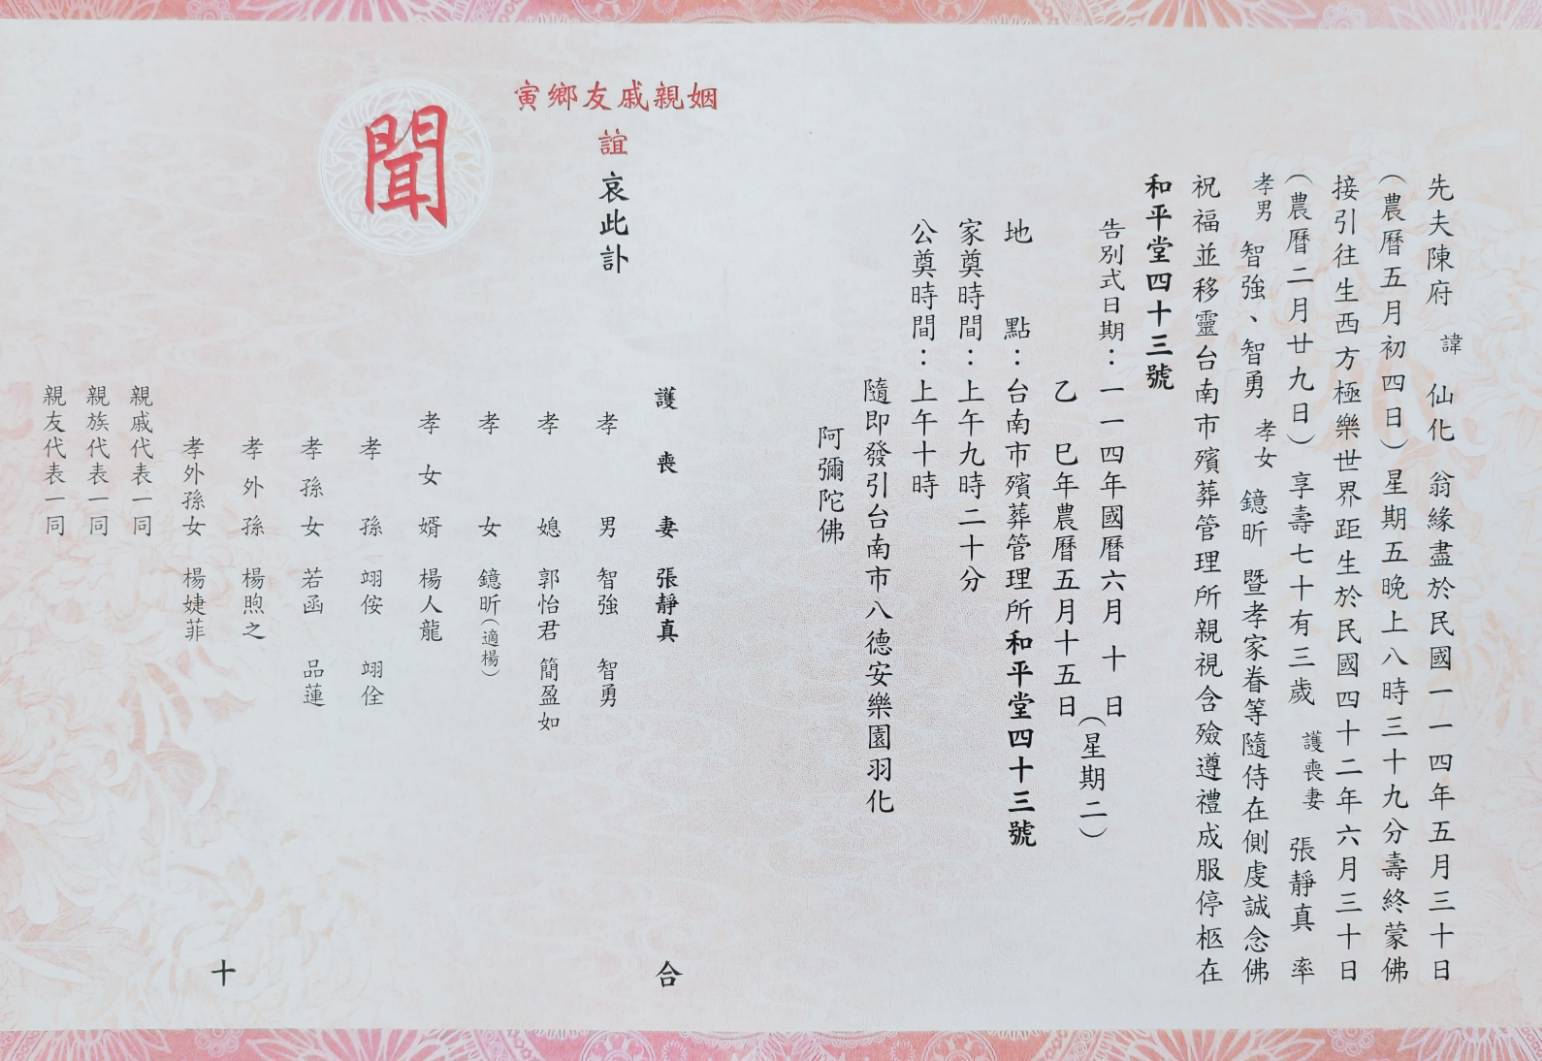 先夫陳府 諱 仙化 翁緣盡於民國一一四年五月三十日
（農曆五月初四日）星期五晚上八時三十九分壽終蒙佛
接引往生西方極樂世界距生於民國四十二年六月三十日
（農曆二月廿九日）享壽七十有三歲 護喪妻 張靜真 率
孝男 智強、智勇 孝女 鏡昕 暨孝家眷等隨侍在側虔誠念佛
祝福並移靈台南市殯葬管理所親視含殮遵禮成服停柩在
和平堂四十三號
告別式日期：一一四年國曆六月 十 日
乙 巳年農曆五月十五日
（星期二）
地 點：台南市殯葬管理所和平堂四十三號
家奠時間：上午九時二十分
公奠時間：上午十時
隨即發引台南市八德安樂園羽化
阿彌陀佛
姻親戚友鄉寅
誼 哀此訃
聞
護 喪 妻 張靜真 合
孝 男 智強 智勇
孝 媳 郭怡君 簡盈如
孝 女 鏡昕（適楊）
孝 女 婿 楊人龍
孝 孫 翊侒 翊佺
孝 孫 女 若函 品蓮
孝 外 孫 楊煦之 十
孝外孫女 楊婕菲
親戚代表一同
親族代表一同
親友代表一同